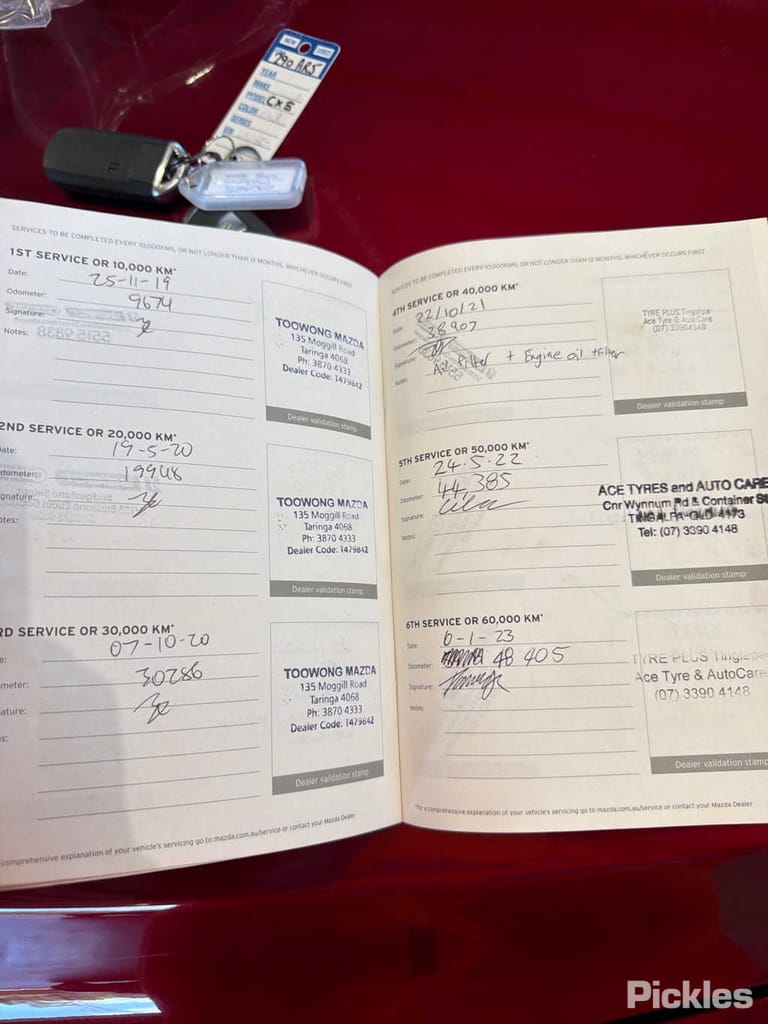 NEW
USED
790 AR5
YEAR
MAKE
MODEL CX5
COLOR
SERIES
VIN
SERVICES TO BE COMPLETED EVERY 10,000KMS, OR NOT LONGER THAN 12 MONTHS, WHICHEVER OCCURS FIRST
1ST SERVICE OR 10,000 KM*
Date: 25-11-19
Odometer: 9674
Signature:
Notes:
TOOWONG MAZDA
135 Moggill Road
Taringa 4068
Ph: 3870 4333
Dealer Code: T479842
Dealer validation stamp
2ND SERVICE OR 20,000 KM*
ate: 19-5-20
dometer: 19948
gnature:
otes:
TOOWONG MAZDA
135 Moggill Road
Taringa 4068
Ph: 3870 4333
Dealer Code: T479842
Dealer validation stamp
RD SERVICE OR 30,000 KM*
e: 07-10-20
meter: 30286
ature:
s:
TOOWONG MAZDA
135 Moggill Road
Taringa 4068
Ph: 3870 4333
Dealer Code: T479842
Dealer validation stamp
comprehensive explanation of your vehicle's servicing go to mazda.com.au/service or contact your Mazda Dealer
SERVICES TO BE COMPLETED EVERY 10,000KMS, OR NOT LONGER THAN 12 MONTHS, WHICHEVER OCCURS FIRST
4TH SERVICE OR 40,000 KM*
Date: 22/10/21
Odometer: 38907
Signature:
Notes: Air Filter + Engine oil + filter
TYRE PLUS Tingalpa
Ace Tyre & AutoCare
(07) 33904148
Dealer validation stamp
5TH SERVICE OR 50,000 KM*
Date: 24.5.22
Odometer: 44 385
Signature:
Notes:
ACE TYRES and AUTO CARE
Cnr Wynnum Rd & Container St
TINGALPA QLD 4173
Tel: (07) 3390 4148
Dealer validation stamp
6TH SERVICE OR 60,000 KM*
Date: 6-1-23
Odometer: 48 405
Signature:
Notes:
TYRE PLUS Tingalpa
Ace Tyre & AutoCare
(07) 3390 4148
Dealer validation stamp
*For a comprehensive explanation of your vehicle's servicing go to mazda.com.au/service or contact your Mazda Dealer
Pickles